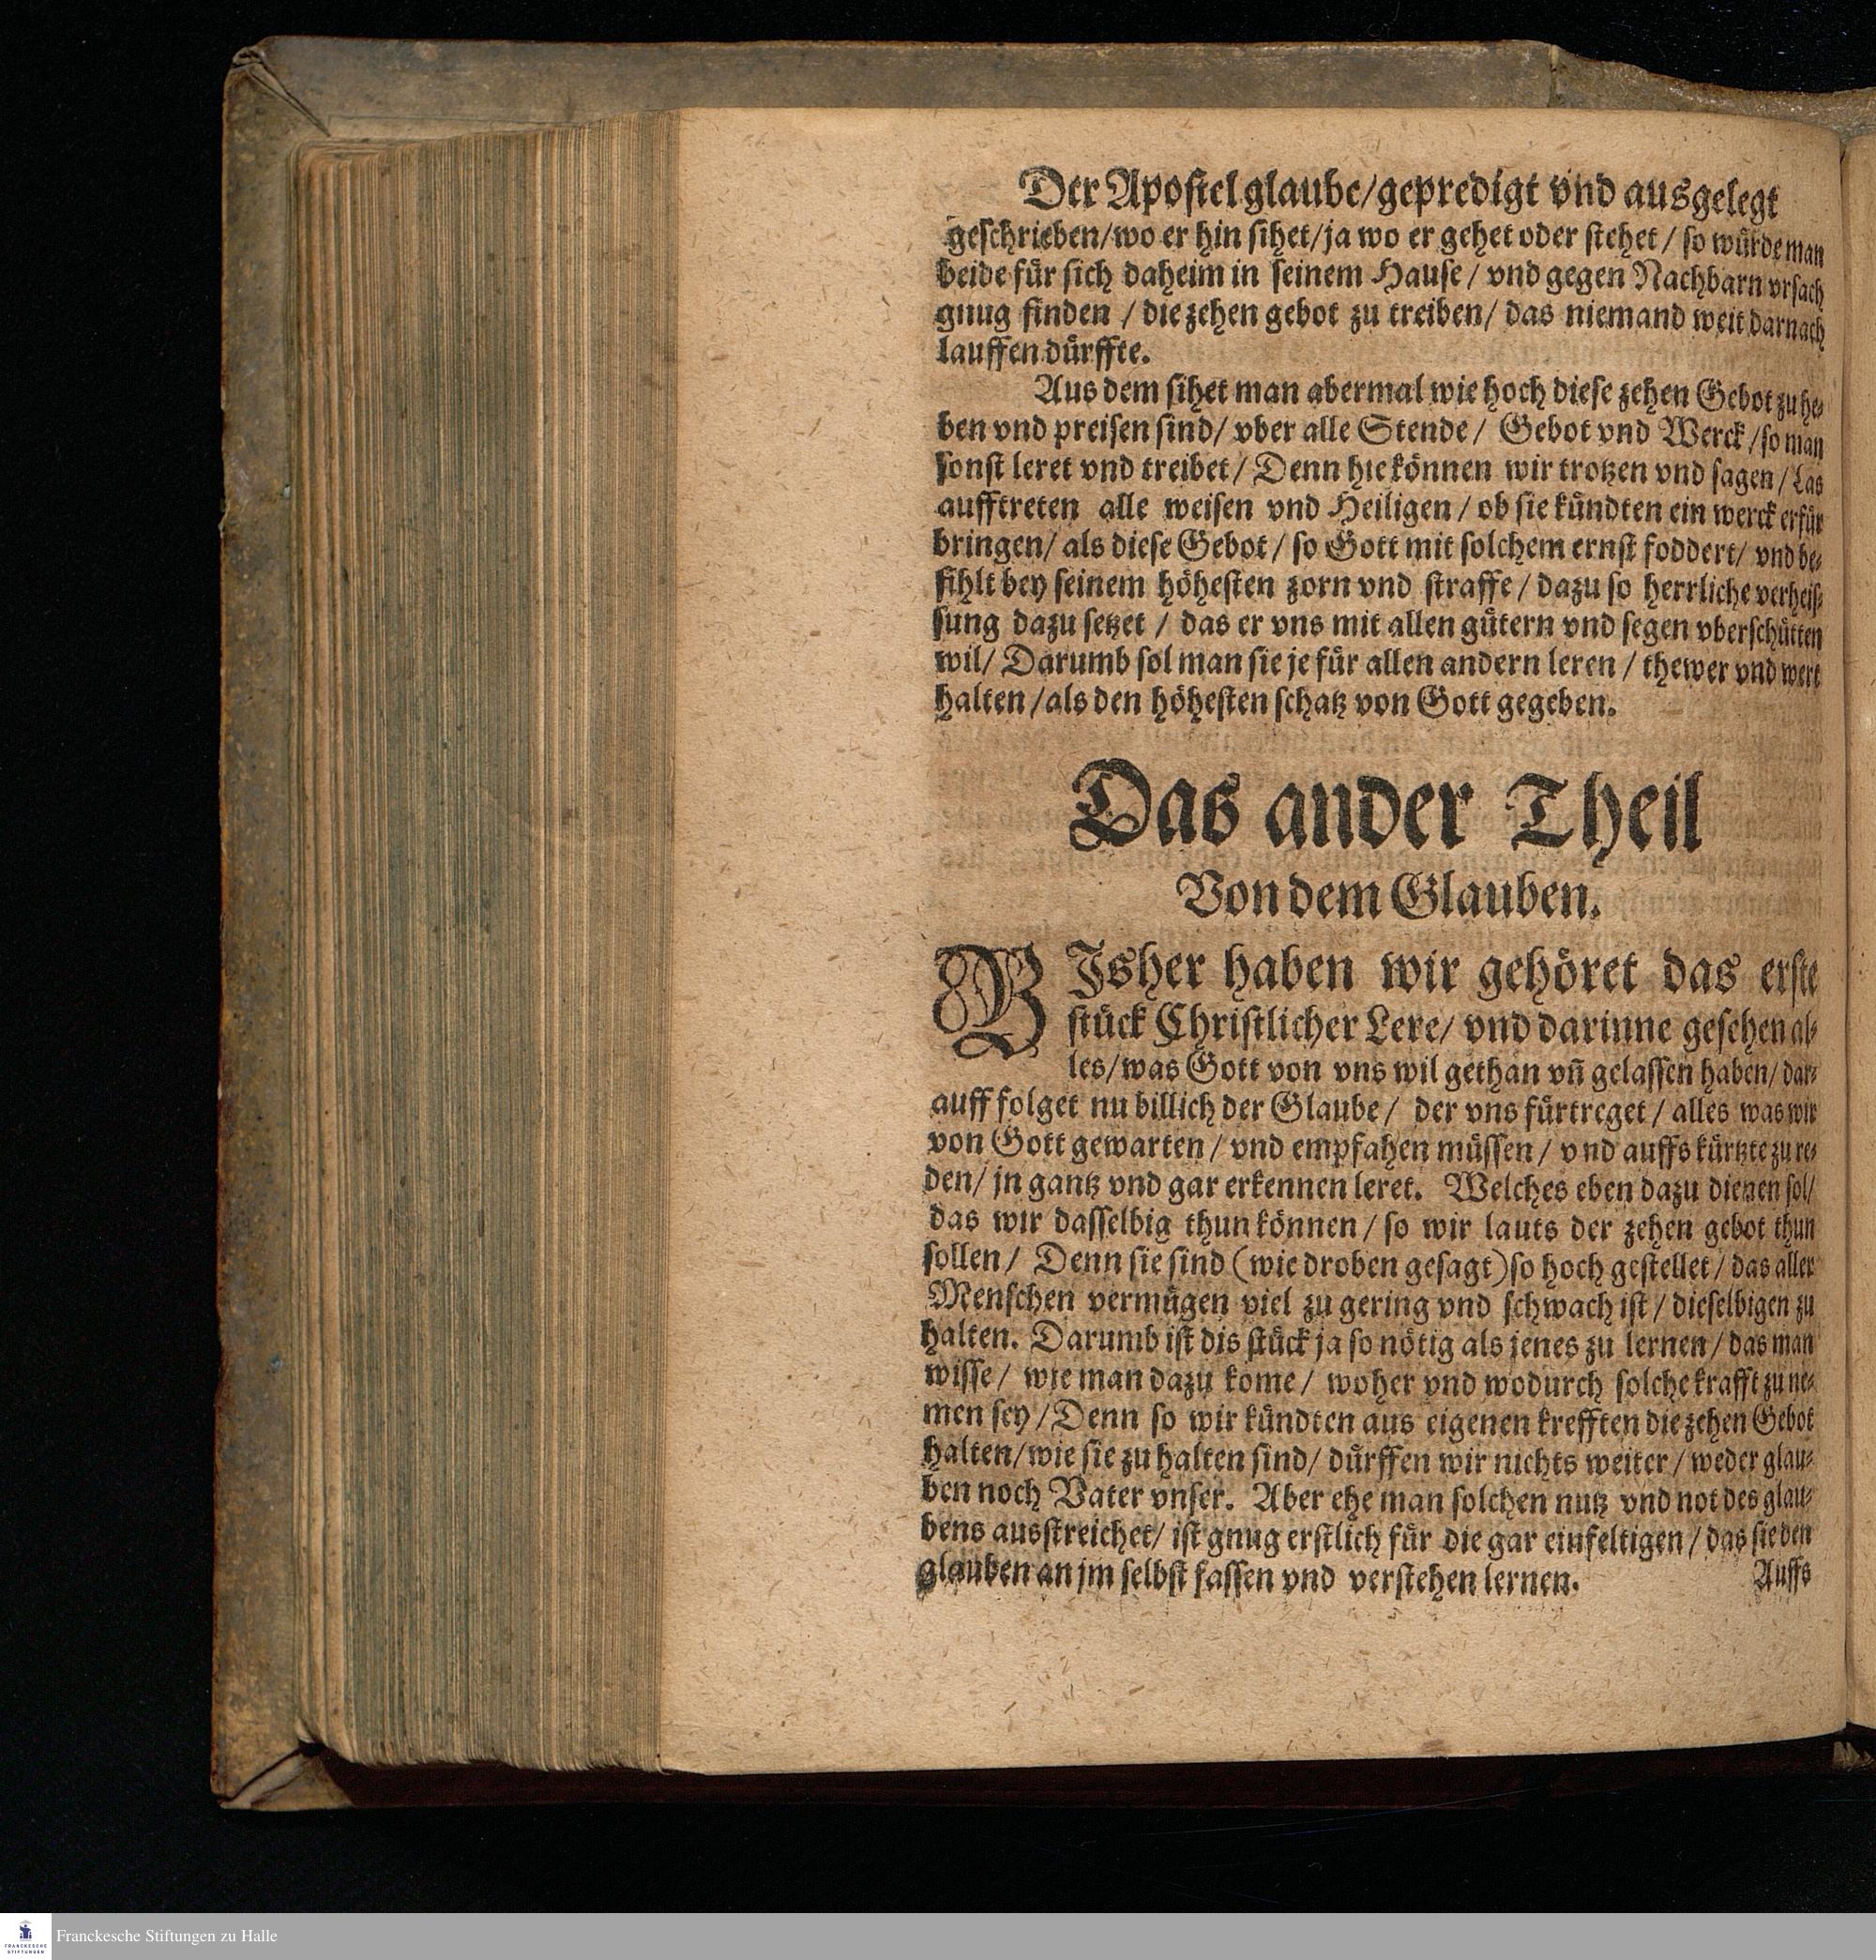 Der Apostel glaube/gepredigt vnd ausgelegt
geschrieben/wo er hin sihet/ja wo er gehet oder stehet / so würde man
beide für sich daheim in seinem Hause / vnd gegen Nachbarn vrsach
gnug finden / die zehen gebot zu treiben/ das niemand weit darnach
lauffen dürffte.
Aus dem sihet man abermal wie hoch diese zehen Gebot zu he-
ben vnd preisen sind/ vber alle Stende / Gebot vnd Werck /so man
sonst leret vnd treibet / Denn hie können wir trotzen vnd sagen / Las
aufftreten alle weisen vnd Heiligen / ob sie kündten ein werck erfür
bringen/ als diese Gebot / so Gott mit solchem ernst foddert/ vnd be-
fihlt bey seinem höhesten zorn vnd straffe / dazu so herrliche verheis-
sung dazu setzet / das er vns mit allen gütern vnd segen vberschütten
wil/ Darumb sol man sie je für allen andern leren / thewer vnd wert
halten /als den höhesten schatz von Gott gegeben.
Das ander Theil
Von dem Glauben.
BIsher haben wir gehöret das erste
stück Christlicher Lere/ vnd darinne gesehen al-
les/was Gott von vns wil gethan vn̄ gelassen haben/ dar-
auff folget nu billich der Glaube / der vns fürtreget / alles was wir
von Gott gewarten / vnd empfahen müssen / vnd auffs kürtzte zu re-
den/ jn gantz vnd gar erkennen leret. Welches eben dazu dienen sol/
das wir dasselbig thun können / so wir lauts der zehen gebot thun
sollen / Denn sie sind (wie droben gesagt) so hoch gestellet / das aller
Menschen vermügen viel zu gering vnd schwach ist / dieselbigen zu
halten. Darumb ist dis stück ja so nötig als jenes zu lernen / das man
wisse / wie man dazu kome / woher vnd wodurch solche krafft zu ne-
men sey /Denn so wir kündten aus eigenen krefften die zehen Gebot
halten/wie sie zu halten sind/ dürffen wir nichts weiter / weder glau-
ben noch Vater vnser. Aber ehe man solchen nutz vnd not des glau-
bens ausstreichet/ ist gnug erstlich für die gar einfeltigen / das sie den
glauben an jm selbst fassen vnd verstehen lernen.
Auffs
FRANCKESCHE
STIFTUNGEN
Franckesche Stiftungen zu Halle